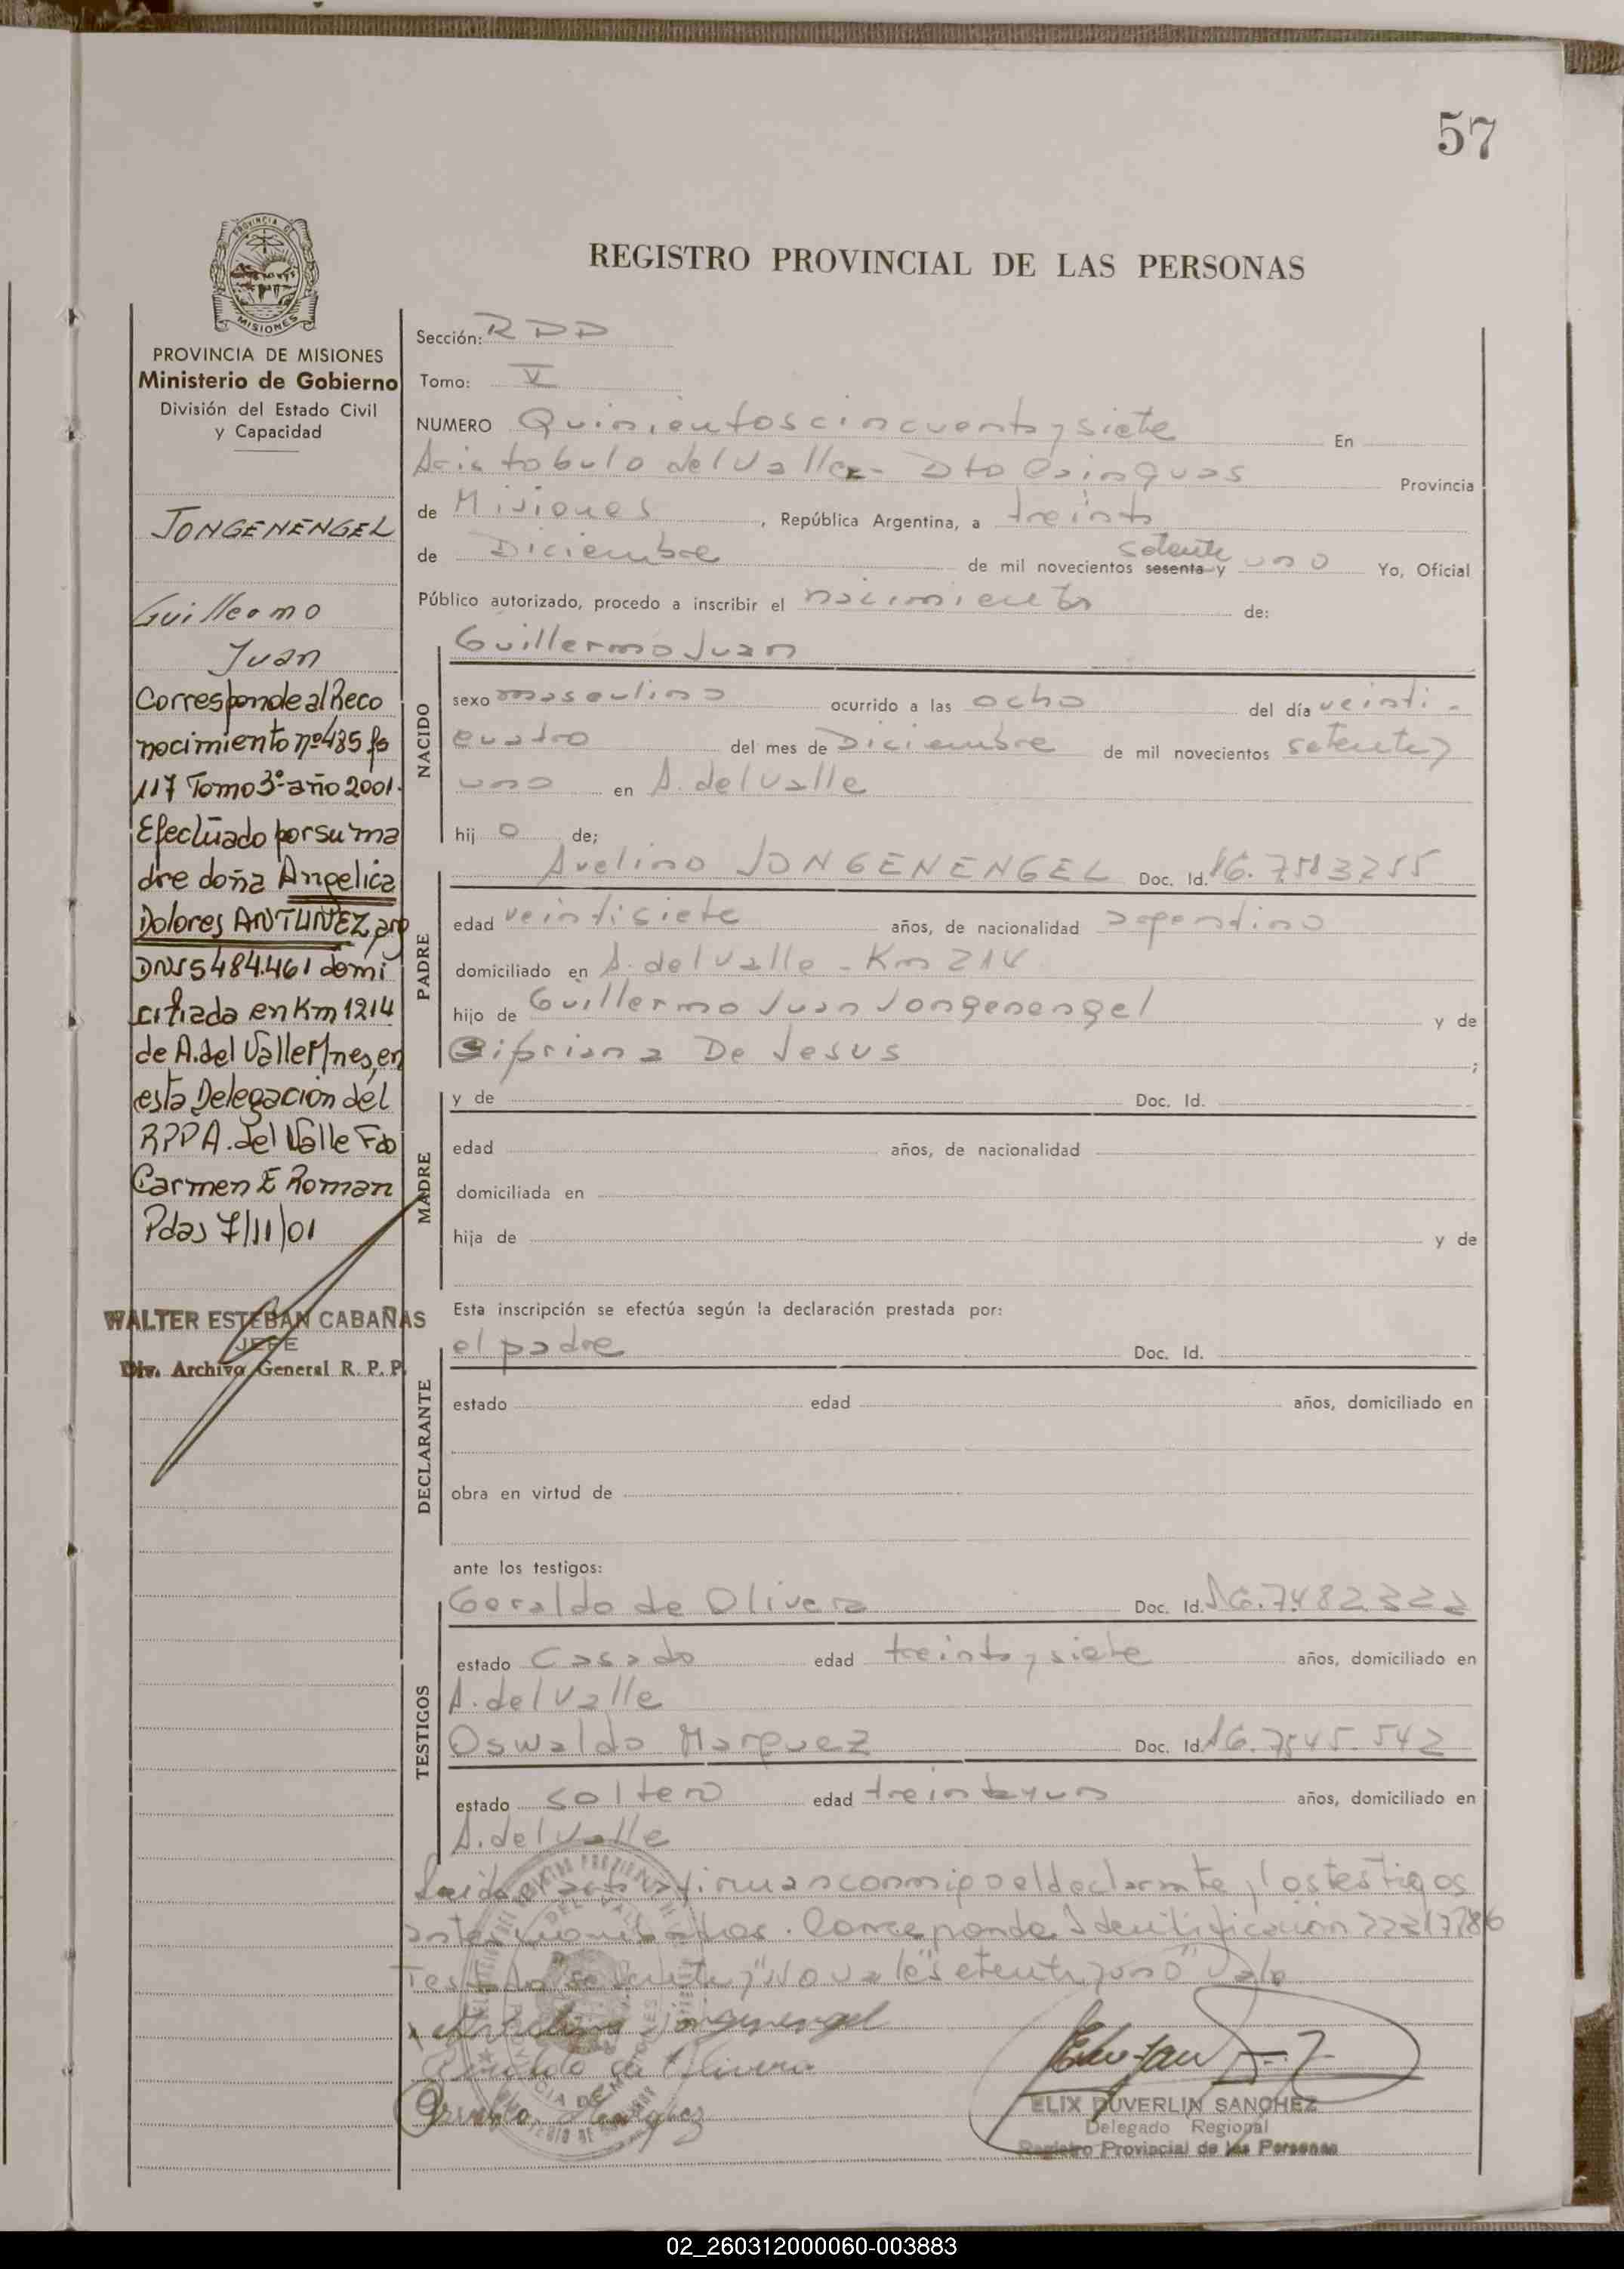 57
PROVINCIA DE
MISIONES
REGISTRO PROVINCIAL DE LAS PERSONAS
PROVINCIA DE MISIONES
Ministerio de Gobierno
División del Estado Civil
y Capacidad
JONGENENGEL
Guillermo
Juan
Corresponde al Reco
nocimiento nº 485 fo
117 Tomo 3º año 2001.
Efectuado por su ma
dre doña Angelica
Dolores ANTUNEZ arg
DNI 5484.461 domi
ciliada en Km 1214
de A. del Valle Mnes, en
esta Delegacion del
RPP A. del Valle Fdo
Carmen E Roman
Pdas 7/11/01
WALTER ESTEBAN CABAÑAS
JEFE
Div. Archivo General R. P. P.
Sección: RDD
Tomo: V
NUMERO Quinientos cincuenta y siete En
Aristobulo del Valle - Dto Cainguas Provincia
de Misiones, República Argentina, a treinta
de Diciembre de mil novecientos sesenta y setenta uno Yo, Oficial
Público autorizado, procedo a inscribir el nacimiento de:
NACIDO
Guillermo Juan
sexo masculino ocurrido a las ocho del día veinti-
cuatro del mes de Diciembre de mil novecientos setenta y
uno en A. del Valle
hij o de;
PADRE
Avelino JONGENENGEL Doc. Id.
edad veintisiete años, de nacionalidad argentino
domiciliado en A. del Valle - Km 214
hijo de Guillermo Juan Jongenengel y de
Cipriana De Jesus ;
MADRE
y de Doc. Id.
edad años, de nacionalidad
domiciliada en
hija de y de
Esta inscripción se efectúa según la declaración prestada por:
DECLARANTE
el padre Doc. Id.
estado edad años, domiciliado en
obra en virtud de
ante los testigos:
TESTIGOS
Geraldo de Olivera Doc. Id. 16.7482322
estado Casado edad treinta y siete años, domiciliado en
A. del Valle
Oswaldo Marquez Doc. Id. 16.7545.542
estado soltero edad treinta y un años, domiciliado en
A. del Valle
Leida el acta la firman conmigo el declarante y los testigos
antes nombrados. Corresponde Identificacion
Testado "sesenta y" No vale "setenta y uno" Vale
Jongenengel
Geraldo de Olivera
Osvaldo Marquez
ELIX DUVERLIN SANCHEZ
Delegado Regional
Registro Provincial de las Personas
02_260312000060-003883